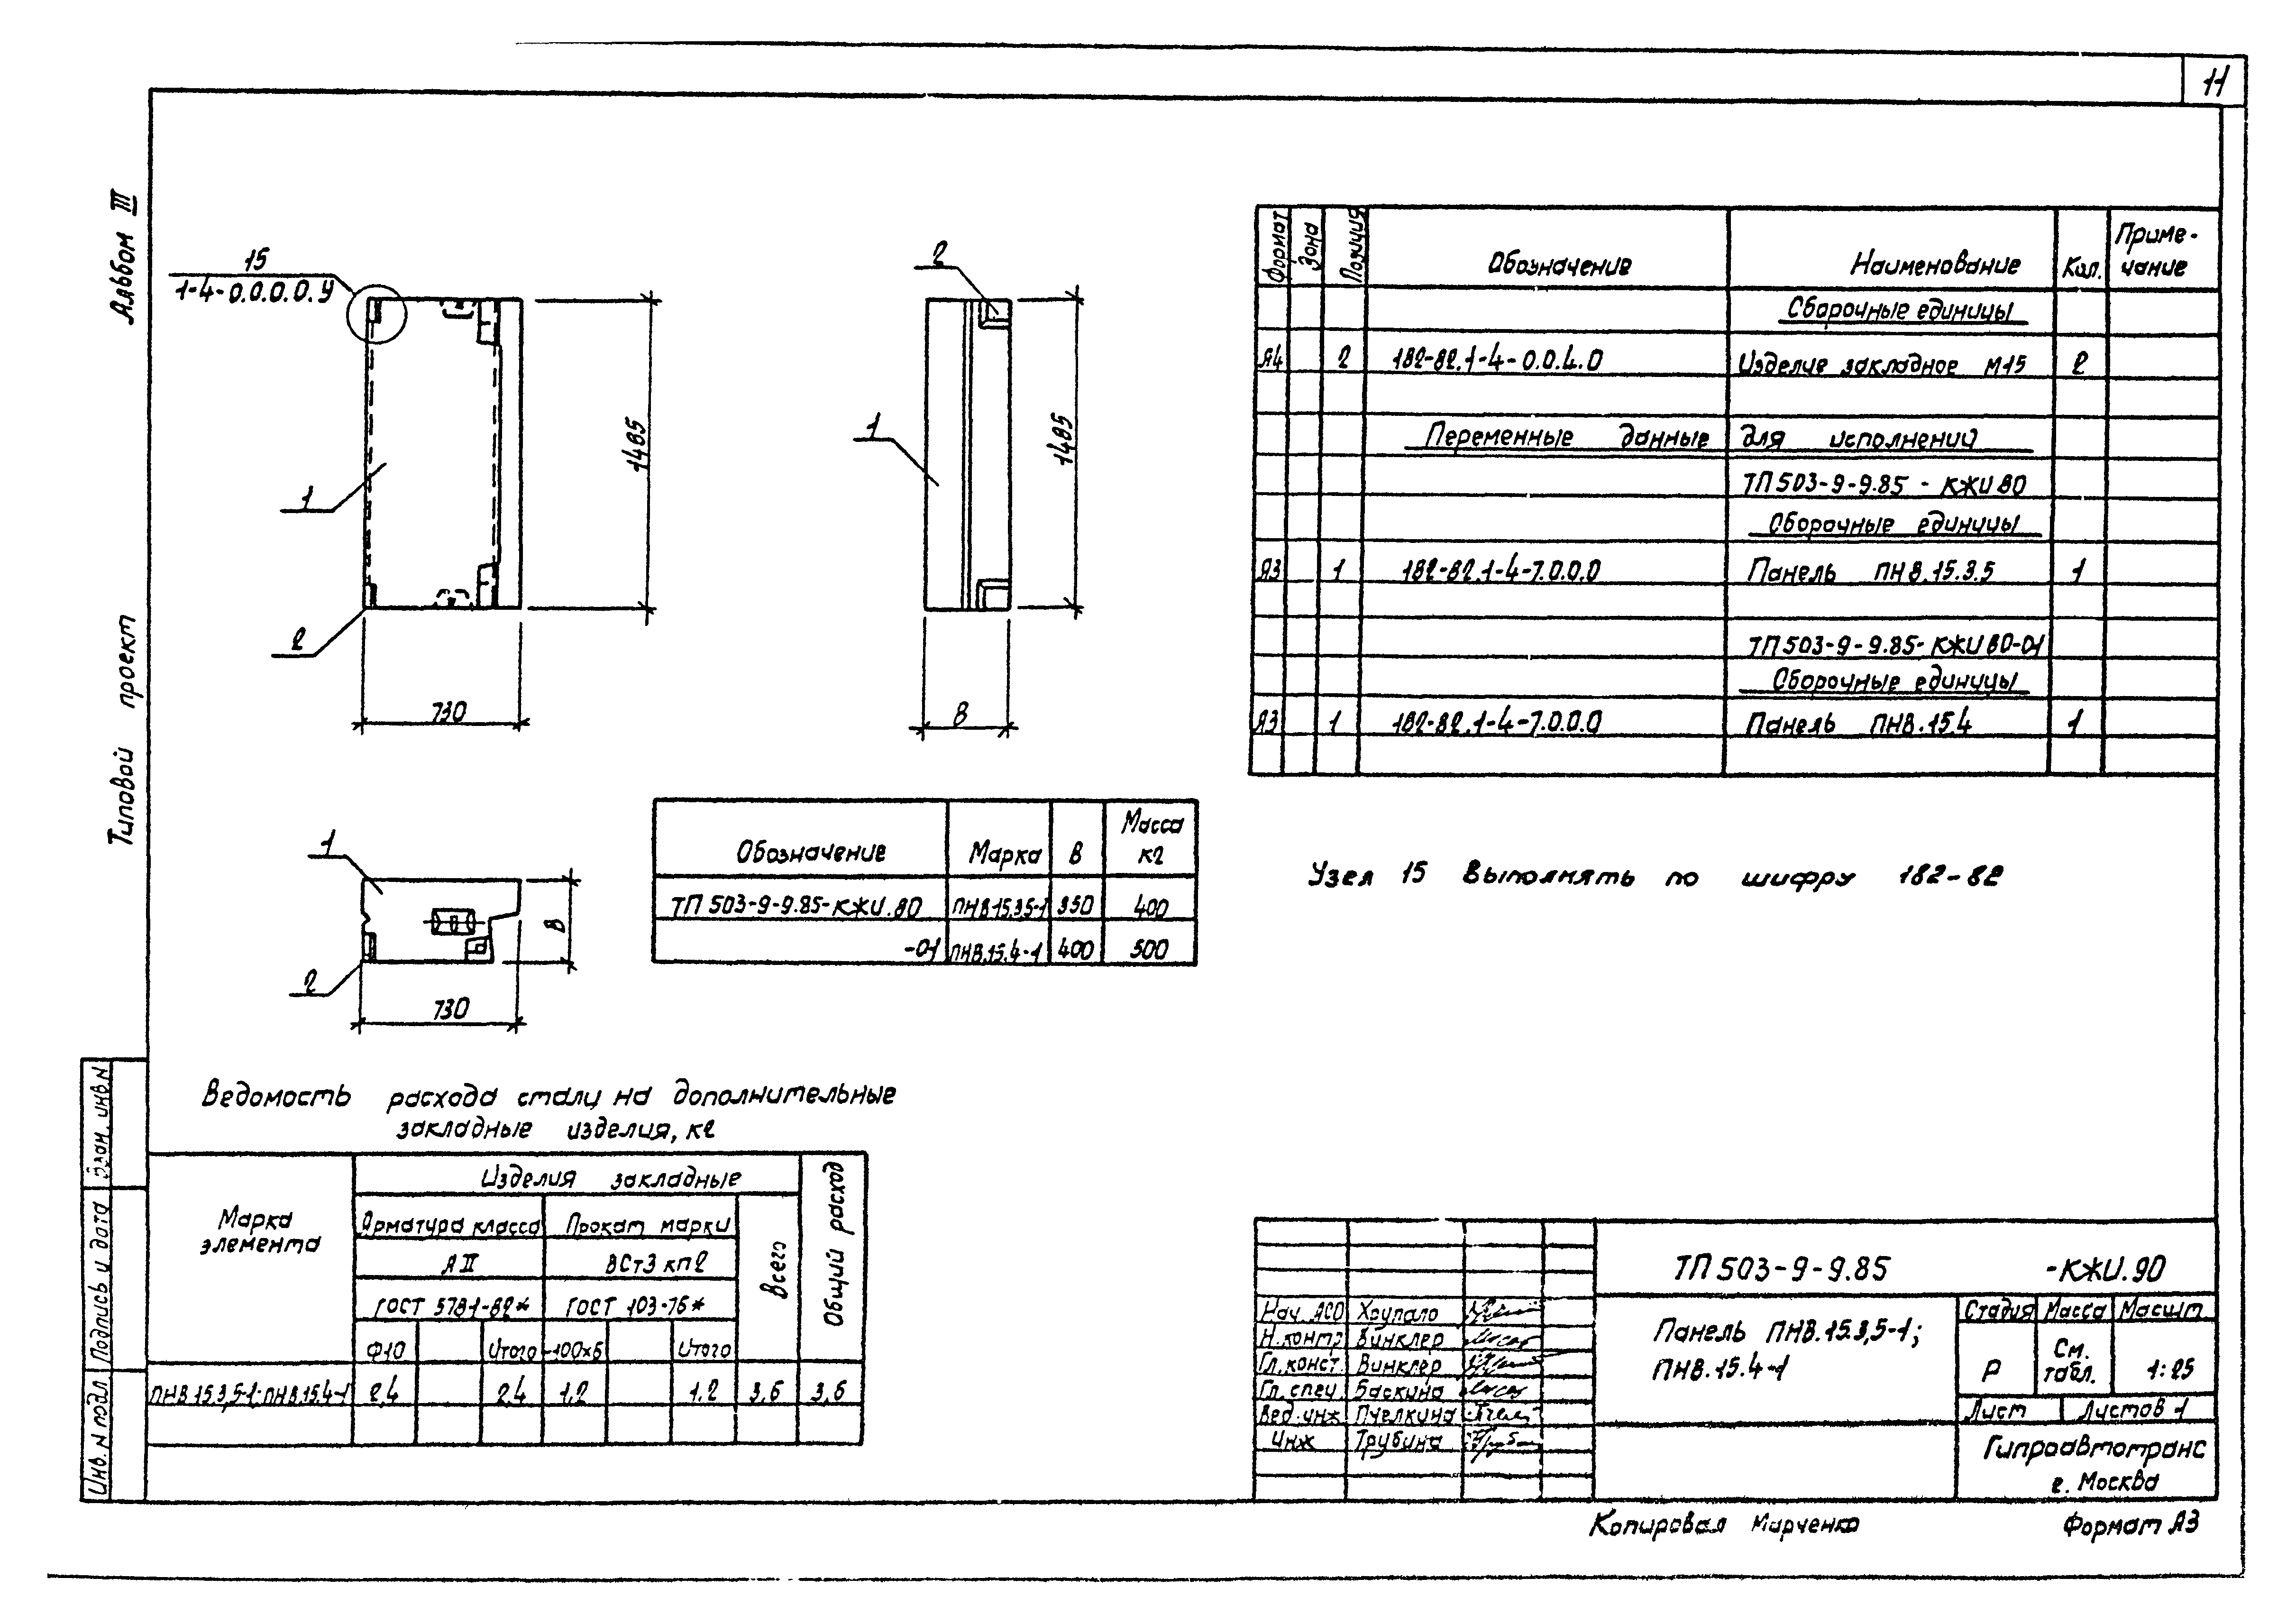 11
Альбом III
Типовой проект
15
1-4-0.0.0.0.У
1
2
1485
730
2
1
1485
В
1
2
730
В
Формат
Зона
Позиция
Обозначение
Наименование
Кол.
Приме-
чание
Сборочные единицы
А4 2 182-82.1-4-0.0.4.0 Изделие закладное М15 2
Переменные данные для исполнений
ТП 503-9-9.85 - КЖИ 80
Сборочные единицы
А3 1 182-82.1-4-7.0.0.0 Панель ПНВ.15.3.5 1
ТП 503-9-9.85-КЖИ 80-01
Сборочные единицы
А3 1 182-82.1-4-7.0.0.0 Панель ПНВ.15.4 1
Обозначение Марка В Масса
кг
ТП 503-9-9.85-КЖИ.80 ПНВ.15.3.5-1 350 400
-01 ПНВ.15.4-1 400 500
Узел 15 выполнять по шифру 182-82
Ведомость расхода стали на дополнительные
закладные изделия, кг
Марка
элемента
Изделия закладные
Общий расход
Арматура класса Прокат марки
Всего
А II ВСт3 кп2
ГОСТ 5781-82* ГОСТ 103-76*
Ф10 Итого -100х6 Итого
ПНВ.15.3,5-1; ПНВ.15.4-1 2,4 2,4 1,2 1,2 3,6 3,6
Взам. инв. N
Подпись и дата
Инв. N подл
ТП 503-9-9.85 -КЖИ.90
Нач. АСО Хрупало
Н.контр Винклер
Гл.конст. Винклер
Гл.спец. Баскина
Вед.инж Пчелкина
Инж Трубина
Панель ПНВ.15.3,5-1;
ПНВ.15.4-1
Стадия Масса Масшт
Р См.
табл. 1:25
Лист Листов 1
Гипроавтотранс
г. Москва
Копировал Марченко
Формат А3